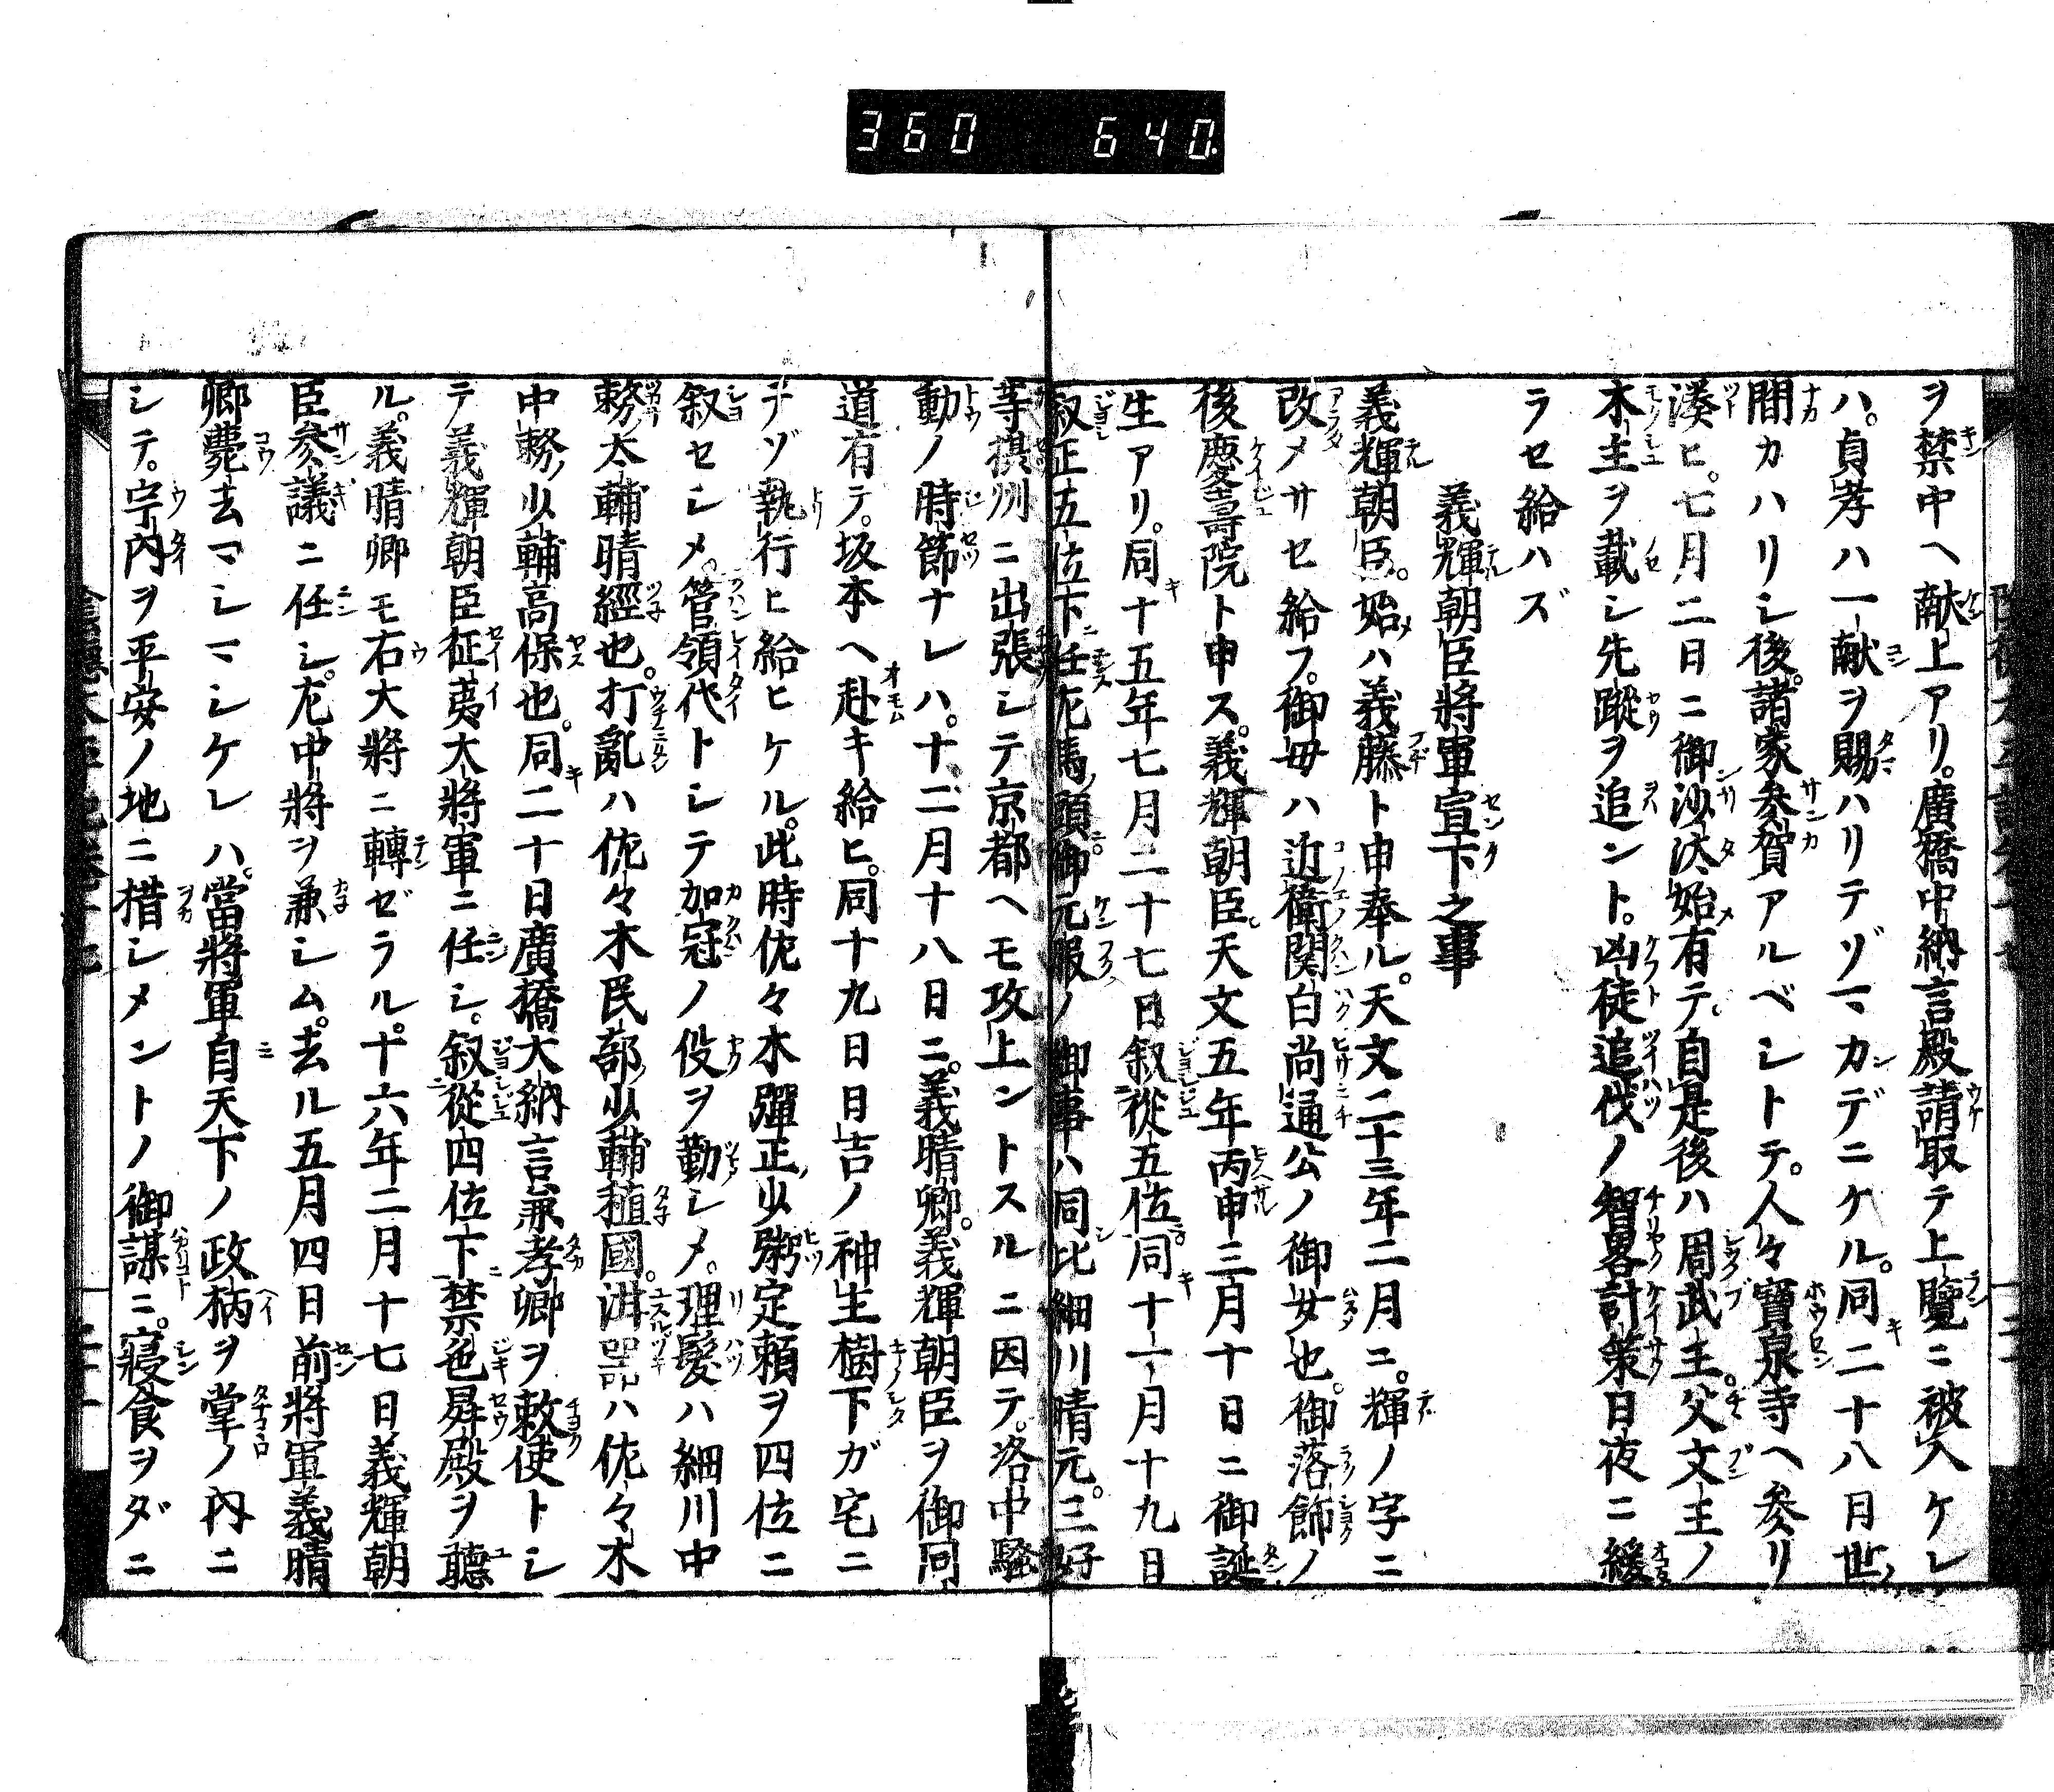 360 640
ヲ禁中ヘ献上アリ。廣橋中納言殿請取テ上覽ニ被入ケレ
ハ。貞孝ハ一献ヲ賜ハリテゾマカデニケル。同二十八日世ノ
間カハリシ後。諸家参賀アルベシトテ。人々寶泉寺ヘ参リ
湊ヒ。七月二日ニ御沙汰始有テ。自是後ハ周武王。父文王ノ
木主ヲ載シ先蹤ヲ追ント。凶徒追伐ノ智畧計策日夜ニ緩
ラセ給ハズ
義輝朝臣將軍宣下之事
義輝朝臣。始ハ義藤ト申奉ル。天文二十三年二月ニ。輝ノ字ニ
改メサセ給フ。御毋ハ近衛関白尚通公ノ御女也。御落飾ノ
後慶壽院ト申ス。義輝朝臣天文五年丙申三月十日ニ御誕
生アリ。同十五年七月二十七日叙從五位。同十一月十九日
叙正五位下任左馬頭。御元服ノ御事ハ同比細川晴元。三好
等摂州ニ出張シテ京都ヘモ攻上ントスルニ因テ。洛中騒
動ノ時節ナレハ。十二月十八日ニ。義晴卿。義輝朝臣ヲ御同
道有テ。坂本ヘ赴キ給ヒ。同十九日日吉ノ神主樹下ガ宅ニ
テゾ執行ヒ給ヒケル。此時佐々木彈正少弼定頼ヲ四位ニ
叙セシメ。管領代トシテ加冠ノ役ヲ勤シメ。理髮ハ細川中
務太輔晴經也。打亂ハ佐々木民部少輔稙國。泔器ハ佐々木
中務少輔高保也。同二十日廣橋大納言兼孝卿ヲ敕使トシ
テ義輝朝臣征夷大將軍ニ任シ。叙從四位下禁色昇殿ヲ聽
ル。義晴卿モ右大將ニ轉ゼラル。十六年二月十七日義輝朝
臣参議ニ任シ。左中將ヲ兼シム。去ル五月四日前將軍義晴
卿薨去マシマシケレハ。當將軍自天下ノ政柄ヲ掌ノ内ニ
シテ。宇内ヲ平安ノ地ニ措シメントノ御謀ニ。寢食ヲダニ